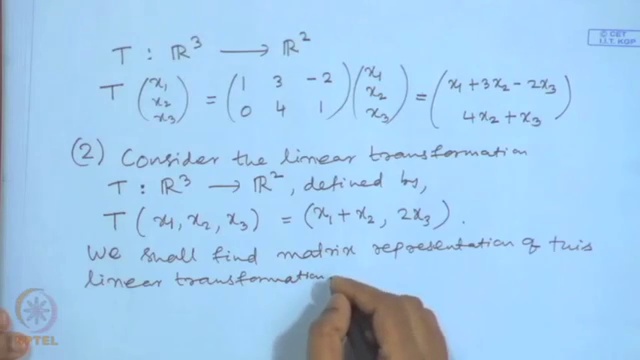 © CET
I.I.T. KGP
T : ℝ³ ⟶ ℝ²
T (x₁ x₂ x₃) = (1 3 -2 0 4 1) (x₁ x₂ x₃) = (x₁ + 3x₂ - 2x₃ 4x₂ + x₃)
(2) Consider the linear transformation
T : ℝ³ ⟶ ℝ², defined by,
T (x₁, x₂, x₃) = (x₁ + x₂, 2x₃).
We shall find matrix representation of this
linear transformation
NPTEL